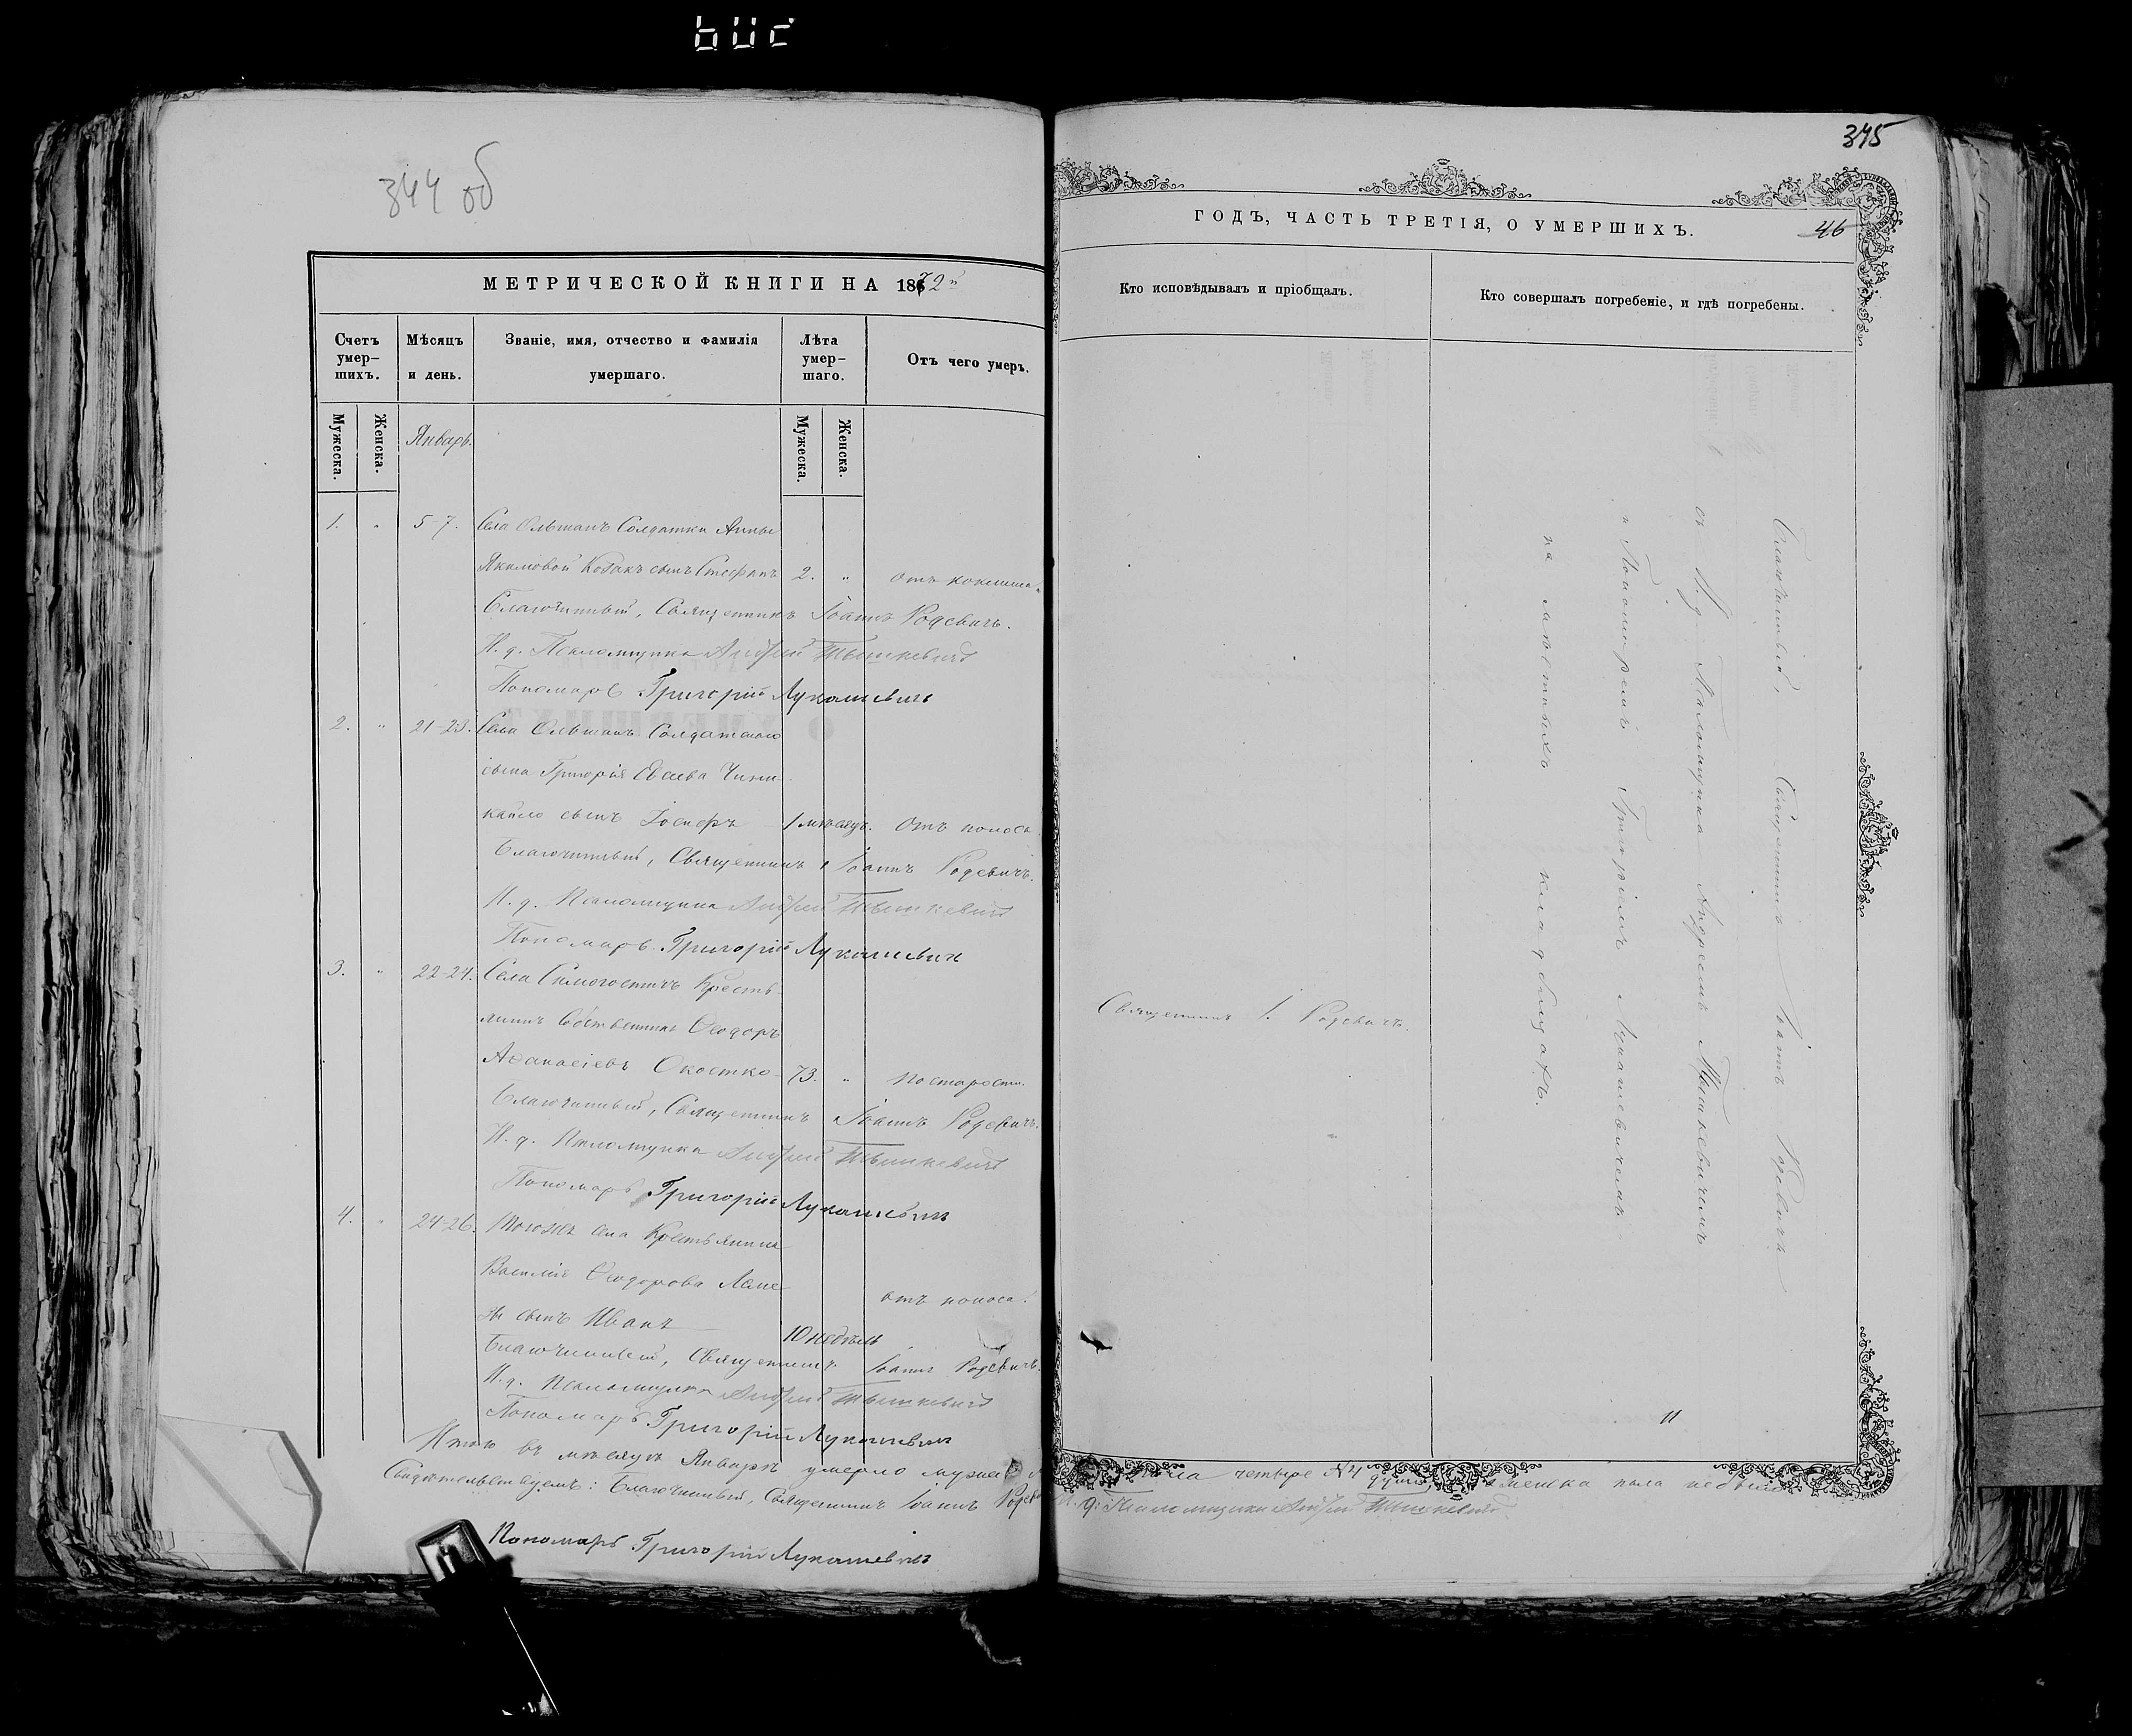 344 об
МЕТРИЧЕСКОЙ КНИГИ НА 1872й
Счетъ умер-шихъ.
Мѣсяцъ и день.
Званіе, имя, отчество и фамилія умершаго.
Лѣта умер-шаго.
Отъ чего умеръ.
Мужеска.
Женска.
Январь.
Мужеска.
Женска.
1. " 5-7. Села Ольшанъ Солдатки Анны
Якимовой Козакъ сынъ Стефанъ 2. " отъ коклюша.
Благочинный, Священникъ Іоаннъ Родевичъ.
И. д. Псаломщика Андрей Тышкевичъ
Пономарь Григорій Лукашевичъ
2. " 21-23. Села Ольшанъ Солдатскаго
сына Григорія
кайло сынъ Іосифъ 1 мѣсяцъ. Отъ поноса
Благочинный, Священникъ Іоаннъ Родевичъ.
И. д. Псаломщика Андрей Тышкевичъ
Пономарь Григорій Лукашевичъ
3. " 22-24. Села Симогостичъ Кресть-
янинъ Собственникъ Ѳеодоръ
Аѳанасіевъ Окостко 73. " по старости.
Благочинный, Священникъ Іоаннъ Родевичъ.
И. д. Псаломщика Андрей Тышкевичъ
Пономарь Григорій Лукашевичъ
4. " 24-26. Тогожъ села Крестьянина
Василія Ѳеодорова отъ поноса.
сынъ Иванъ 10 недѣль
Благочинный, Священникъ Іоаннъ Родевичъ.
И. д. Псаломщика Андрей Тышкевичъ
Пономарь Григорій Лукашевичъ
Итого въ мѣсяцѣ Январѣ умерло мужеска
Свидѣтельствуемъ: Благочинный, Священникъ Іоаннъ
Пономарь Григорій Лукашевичъ
375
ГОДЪ, ЧАСТЬ ТРЕТІЯ, О УМЕРШИХЪ.
46
Кто исповѣдывалъ и пріобщалъ.
Кто совершалъ погребеніе, и гдѣ погребены.
Священникъ І. Родевичъ.
Благочинный, Священникъ Іоаннъ Родевичъ
съ И. д. Псаломщика Андреемъ Тышкевичемъ
и Пономаремъ Григоріемъ Лукашевичемъ
на мѣстныхъ кладбищахъ.
пола четыре №4 души, женска пола небыло
И. д. Псаломщика Андрей Тышкевичъ